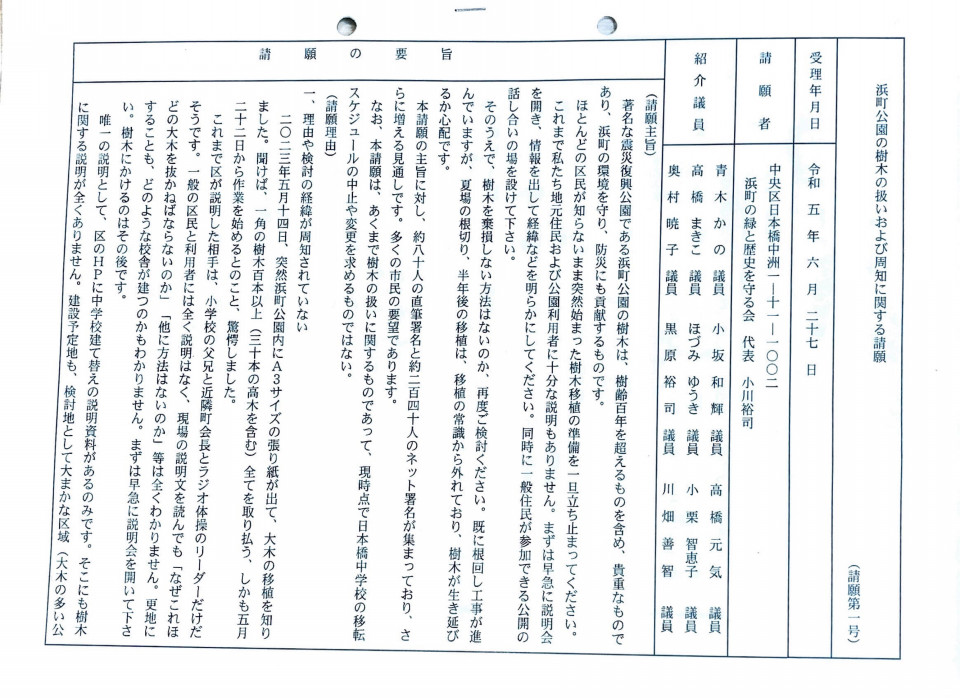 浜町公園の樹木の扱いおよび周知に関する請願
(請願第一号)
受理年月日
令和五年六月二十七日
請願者
中央区日本橋中洲一―十一―一〇〇二
浜町の緑と歴史を守る会 代表 小川裕司
紹介議員
青木かの議員 小坂和輝議員 高橋元気議員
高橋まきこ議員 ほづみゆうき議員 小栗智恵子議員
奥村暁子議員 黒原裕司議員 川畑善智議員
請願の要旨
(請願主旨)
著名な震災復興公園である浜町公園の樹木は、樹齢百年を超えるものを含め、貴重なもので
あり、浜町の環境を守り、防災にも貢献するものです。
ほとんどの区民が知らないまま突然始まった樹木移植の準備を一旦立ち止まってください。
これまで私たち地元住民および公園利用者に十分な説明もありません。まずは早急に説明会
を開き、情報を出して経緯などを明らかにしてください。同時に一般住民が参加できる公開の
話し合いの場を設けて下さい。
そのうえで、樹木を棄損しない方法はないのか、再度ご検討ください。既に根回し工事が進
んでいますが、夏場の根切り、半年後の移植は、移植の常識から外れており、樹木が生き延び
るか心配です。
本請願の主旨に対し、約八十人の直筆署名と約二百四十人のネット署名が集まっており、さ
らに増える見通しです。多くの市民の要望であります。
なお、本請願は、あくまで樹木の扱いに関するものであって、現時点で日本橋中学校の移転
スケジュールの中止や変更を求めるものではない。
(請願理由)
一、理由や検討の経緯が周知されていない
二〇二三年五月十四日、突然浜町公園内にA3サイズの張り紙が出て、大木の移植を知り
ました。聞けば、一角の樹木百本以上(三十本の高木を含む)全てを取り払う、しかも五月
二十二日から作業を始めるとのこと、驚愕しました。
これまで区が説明した相手は、小学校の父兄と近隣町会長とラジオ体操のリーダーだけだ
そうです。一般の区民と利用者には全く説明はなく、現場の説明文を読んでも「なぜこれほ
どの大木を抜かねばならないのか」「他に方法はないのか」等は全くわかりません。更地に
することも、どのような校舎が建つのかもわかりません。まずは早急に説明会を開いて下さ
い。樹木にかけるのはその後です。
唯一の説明として、区のHPに中学校建て替えの説明資料があるのみです。そこにも樹木
に関する説明が全くありません。建設予定地も、検討地として大まかな区域(大木の多い公